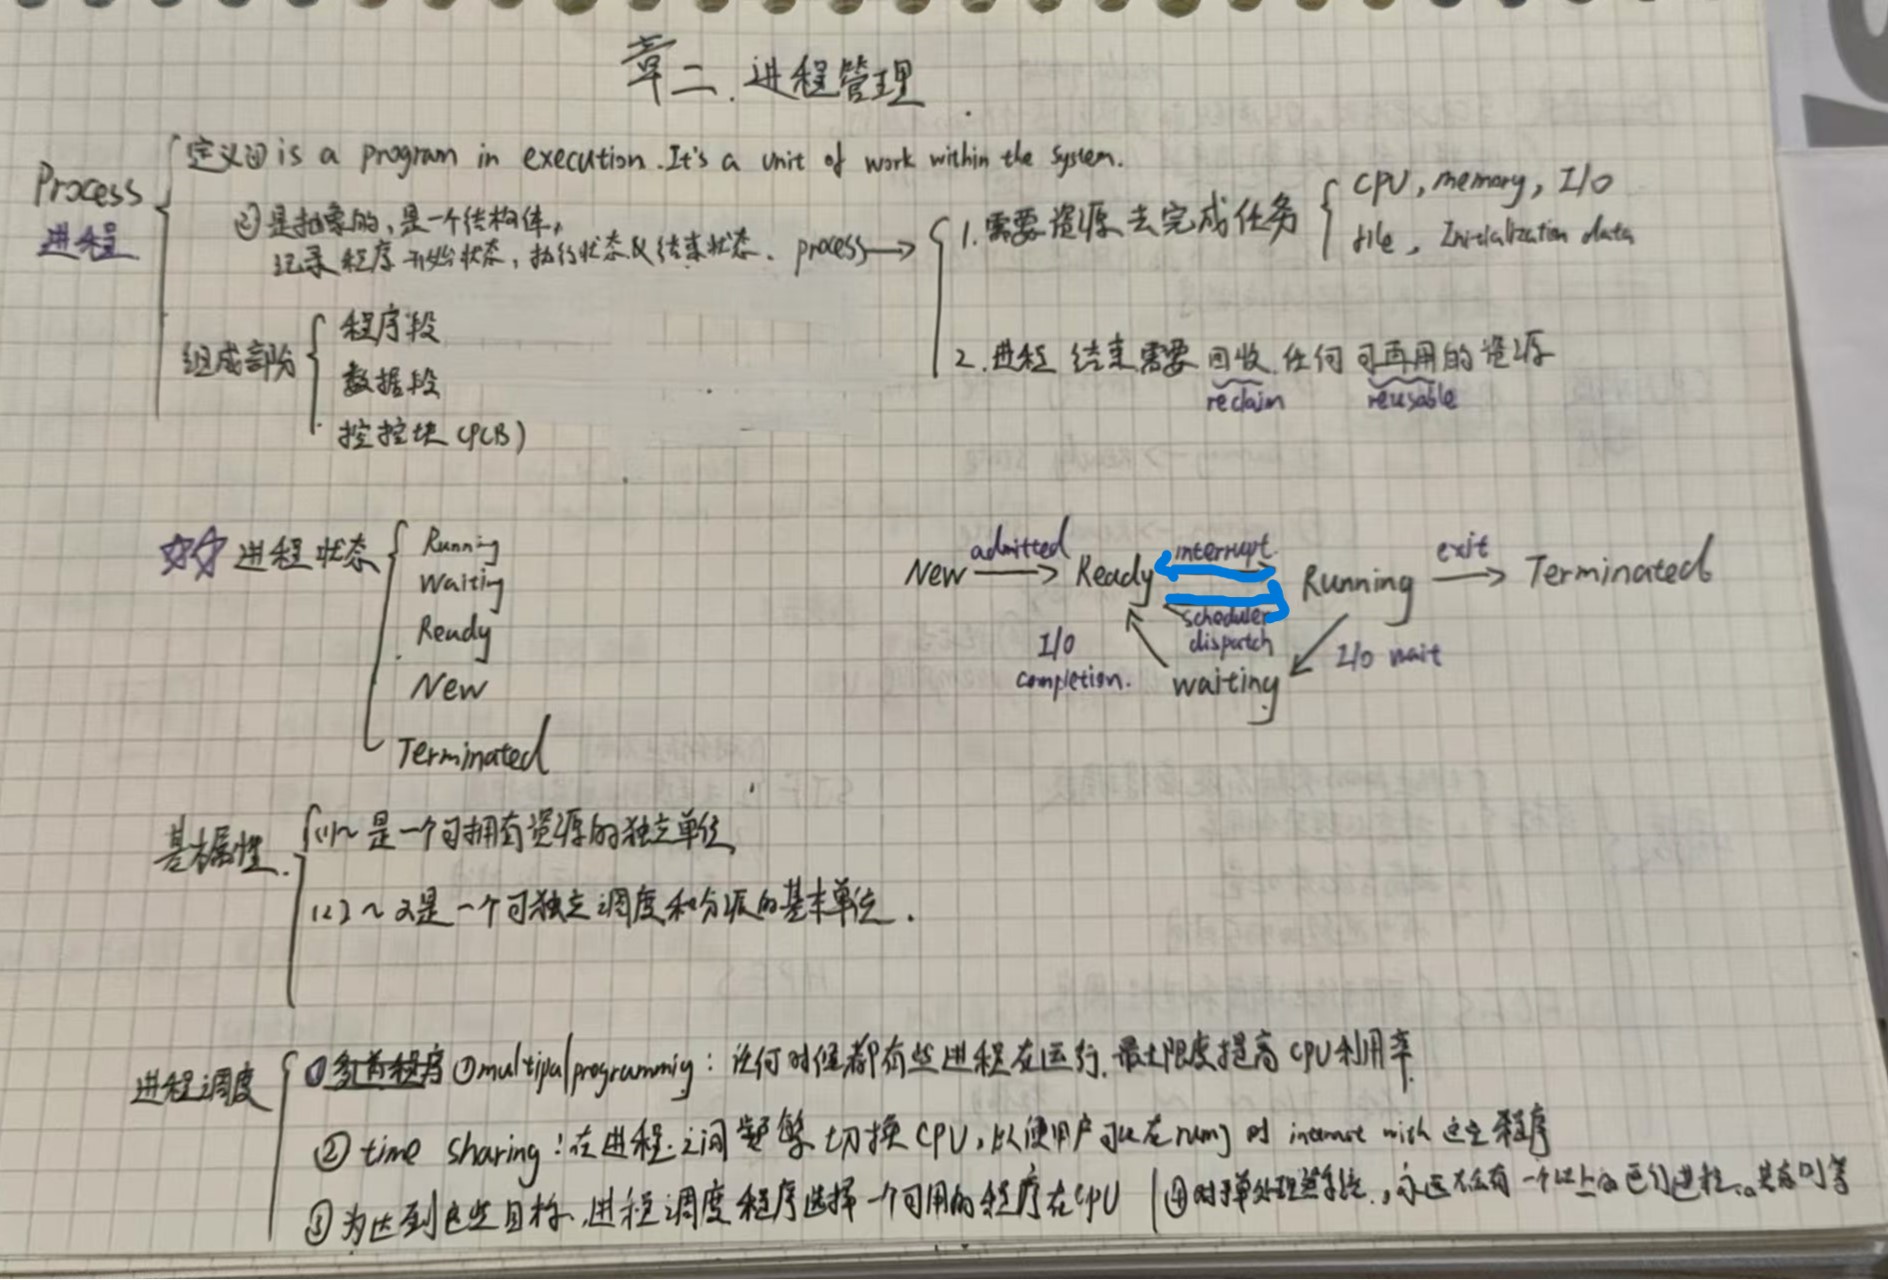 章二. 进程管理
Process
进程
定义① is a program in execution. It's a unit of work within the system.
②是抽象的,是一个结构体,
记录程序开始状态,执行状态及结束状态. process →
1.需要资源去完成任务
CPU, memory, I/O
file, Initialization data
2.进程结束需要回收任何可再用的资源
reclaim
reusable
组成部分
程序段
数据段
控控块(PCB)
进程状态
Running
Waiting
Ready
New
Terminated
New admitted → Ready interrupt Running exit → Terminated
scheduler
dispatch
I/O
completion.
waiting
I/O wait
基本属性.
(1)~是一个可拥有资源的独立单位,
(2)~又是一个可独立调度和分派的基本单位.
进程调度
①multipalprogrammig: 任何时候都有些进程在运行.最大限度提高CPU利用率.
② time sharing: 在进程之间频繁切换CPU,以便用户可以在runnj时 interact with 这些程序
③为达到这些目标,进程调度程序选择一个可用的程序在CPU
④对于单处理器系统,永远不会有一个以上的运行进程。其余则等